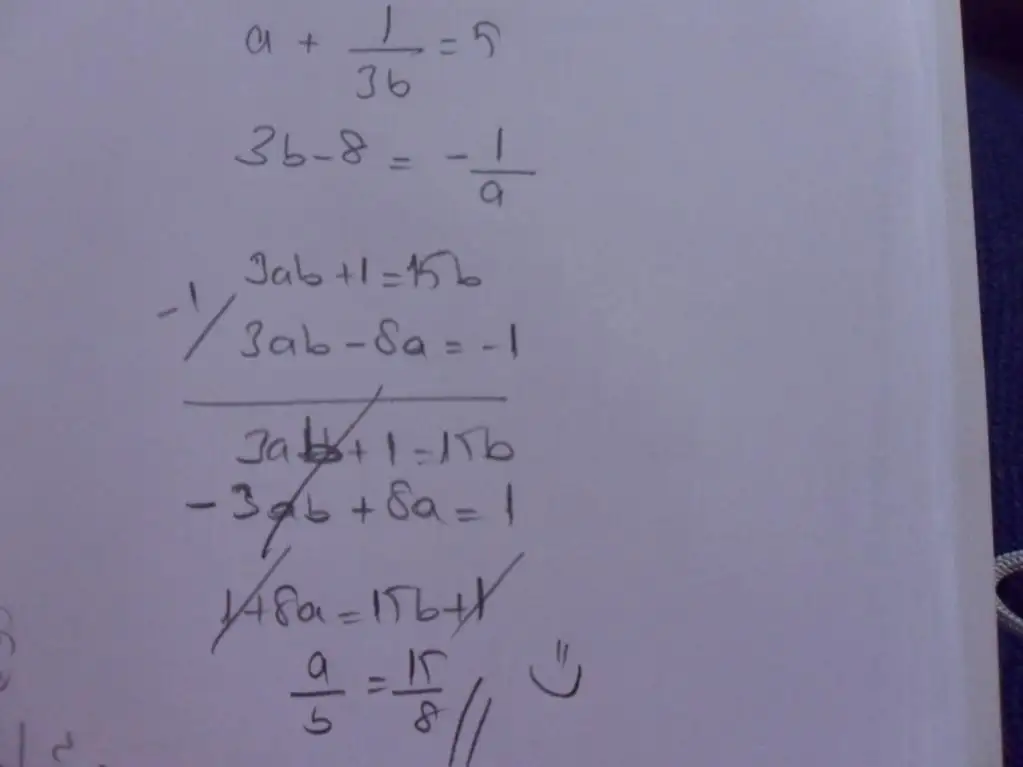 a + 1/3b = 5
3b - 8 = - 1/a
3ab + 1 = 15b
-1/ 3ab - 8a = -1
3ab + 1 = 15b
- 3ab + 8a = 1
1 + 8a = 15b + 1
a/b = 15/8 //